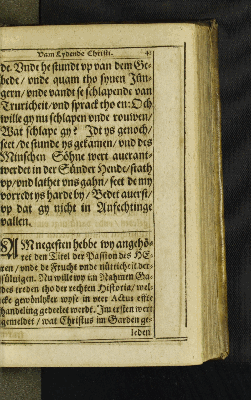 Vam Lydende Christi.
de. Unde he stundt up van dem Ge-
bede / unde quam tho synen Jün-
gern / unde vandt se schlapende van
Truricheit / und sprack tho en: Och
wille gy nu schlapen unde rouwen /
Wat schlape gy? Idt ys genoch /
seet / de stunde ys gekamen / und des
Minschen Söhne wert averant-
werdet in der Sünder Hende / stath
up / und lathet uns gahn / seet de my
vorredt ys harde by / Bedet averst /
up dat gy nicht in Anfechtinge
vallen.
AM negesten hebbe wy angehö-
ret den Titel der Passion des HE-
ren / unde de Frucht unde nütticheit der-
sülvigen. Nu wille wy im Nahmen Ga-
des treden tho der rechten Historia / wel-
cke gewönlyker wyse in veer Actus effte
handeling gedeelet werdt. Im ersten wert
gemeldet / wat Christus im Garden ge-
leden